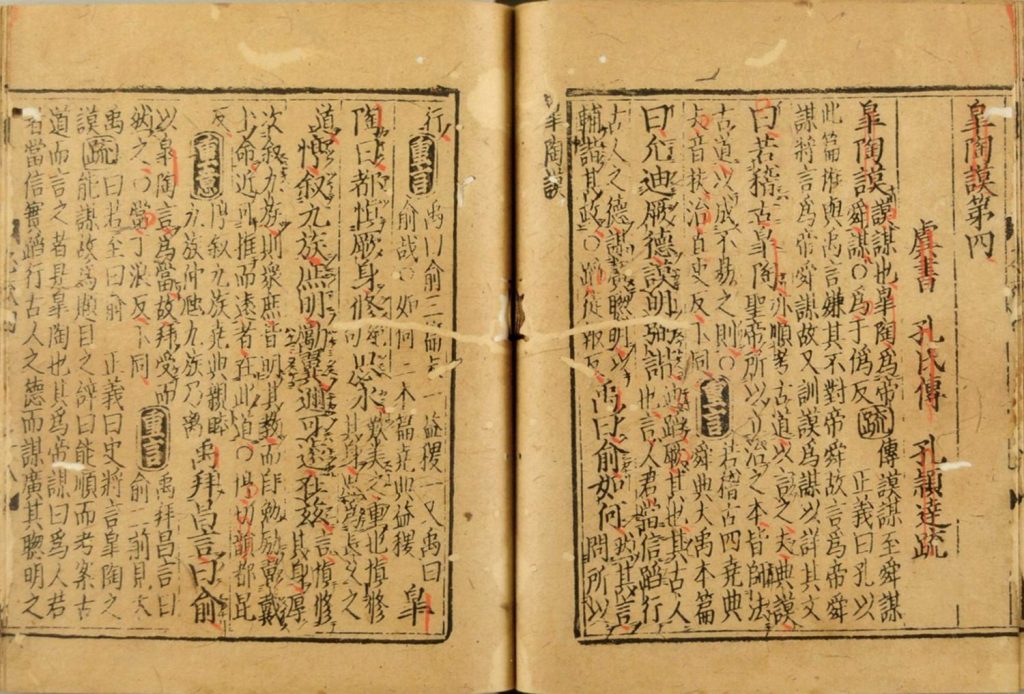 皐陶謨第四
虞書 孔氏傳 孔穎達疏
皐陶謨 謨謀也皐陶爲帝舜謀○爲于僞反 疏 傳謨謀至舜謀 正義曰孔以
此篇惟與禹言嫌其不對帝舜故言爲帝舜
謀將言爲帝舜謀故又訓謨爲謀以詳其文
曰若稽古皐陶 亦順考古道以言之夫典謨聖帝所以立治之本皆師法
古道以成不易之則○夫音扶治直吏反下同 重言 若稽古四堯典舜典大禹本篇
曰允迪厥德謨明弼諧 迪蹈厥其也其古人也言人君當信蹈行
古人之德謀廣聰明以輔諧其政○蹈徒報反 禹曰俞如何 然其言問所以
皐陶謨
行 重言 禹曰俞三篇一益稷一又禹曰俞哉○如何二本篇堯典益稷 皐
陶曰都慎厥身修思永 歎美之重也慎修其身思爲長久之
道惇叙九族庶明勵翼邇可遠在茲 言慎修其身厚
次叙九族則衆庶皆明其教而自勉勵翼戴上命近可推而遠者在此道○惇切韻都昆
反 重意 惇叙九族堯典親睦九族仲虺九族乃離 禹拜昌言曰俞
以皐陶言爲當故拜受而然之○當丁浪反下同 重言 禹拜昌言曰俞二前見大
禹謨 疏 曰若至曰俞 正義曰史將言皐陶之能謀故爲題目之辭曰能順而考案古
道而言之者是皐陶也其爲帝謀曰爲人君
當信實蹈行古人之德而謀廣其聰明之